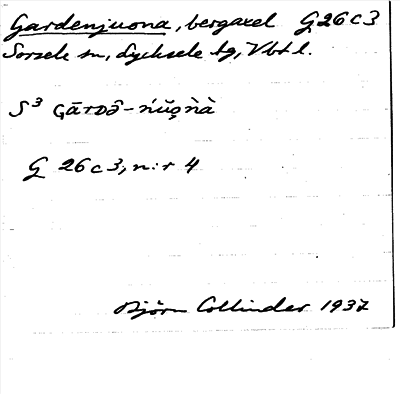 Gardenjuona, bergaxel G26c3
Sorsele sn, Lycksele tg, Vbtl.
S³ Gārdə̂-ńŭo̧ǹà
G 26c3, n:r 4
Björn Collinder 1937